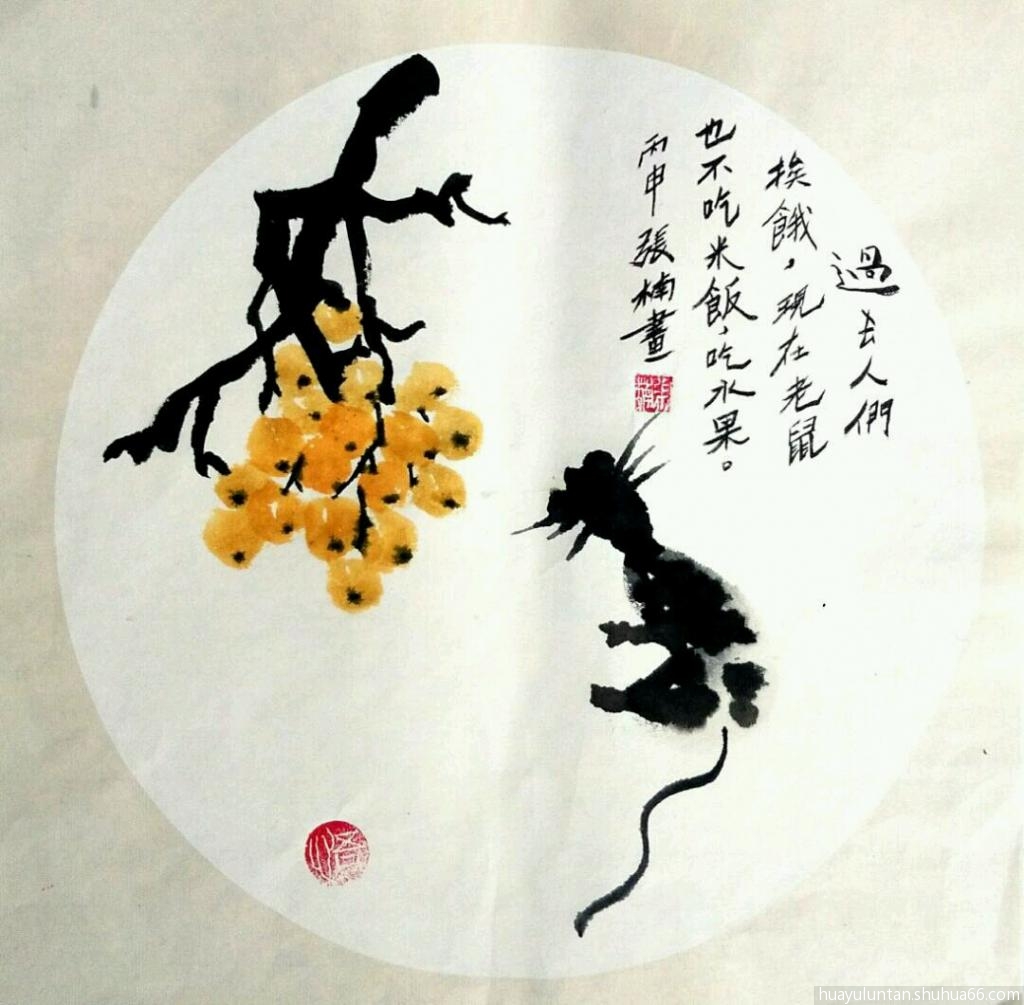 過去人們
挨餓，現在老鼠
也不吃米飯，吃水果。
丙申張楠畫
張楠
悟
huayuluntan.shuhua66.com